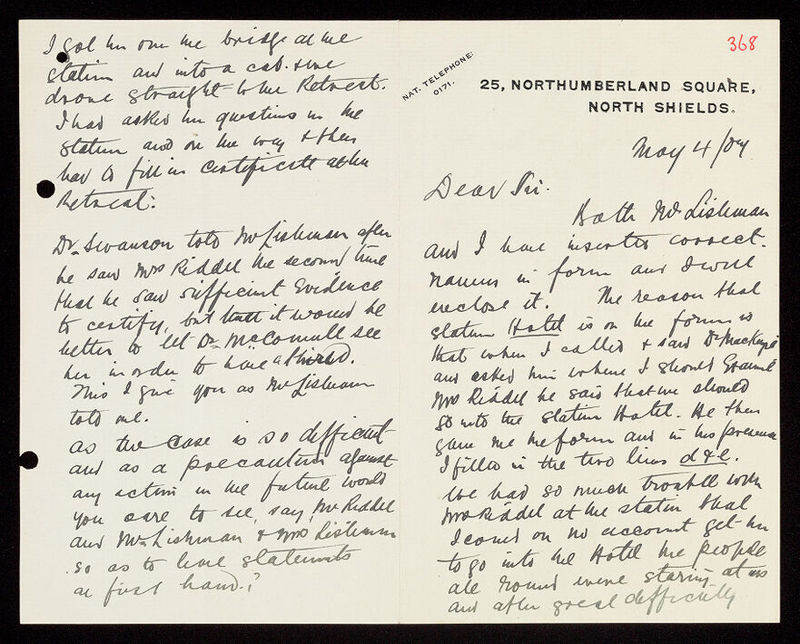 368
NAT. TELEPHONE:
0171.
25, NORTHUMBERLAND SQUARE,
NORTH SHIELDS.
May 4/04
Dear Sir.
Both Mr Lishman
and I have inserted correct.
names in form and I will
enclose it. The reason that
station Hotel is on the form is
that when I called & saw Dr Mackenzie
and asked him where I should examine
Mrs Riddel he said that we should
go into the station Hotel. He then
gave me the form and in his presence
I filled in the two lines d & e.
We had so much trouble with
Mrs Riddel at the station that
I could on no account get her
to go into the Hotel the people
all round were staring at us
and after great difficulty
I got her over the bridge at the
station and into a cab & we
drove straight to the Retreat.
I had asked her questions in the
station and on the way & then
had to fill in certificate at the
Retreat.
Dr Swanson told Mr Lishman after
he saw Mrs Riddel the second time
that he saw sufficient Evidence
to certify, but that it would be
better to let Dr McConnell see
her in order to have a third.
This I give you as Mr Lishman
told me.
As the case is so difficult
and as a precaution against
any action in the future would
you care to see, say, Mr Riddel
and Mr Lishman & Mrs Lishman
so as to have statements
at first hand.?